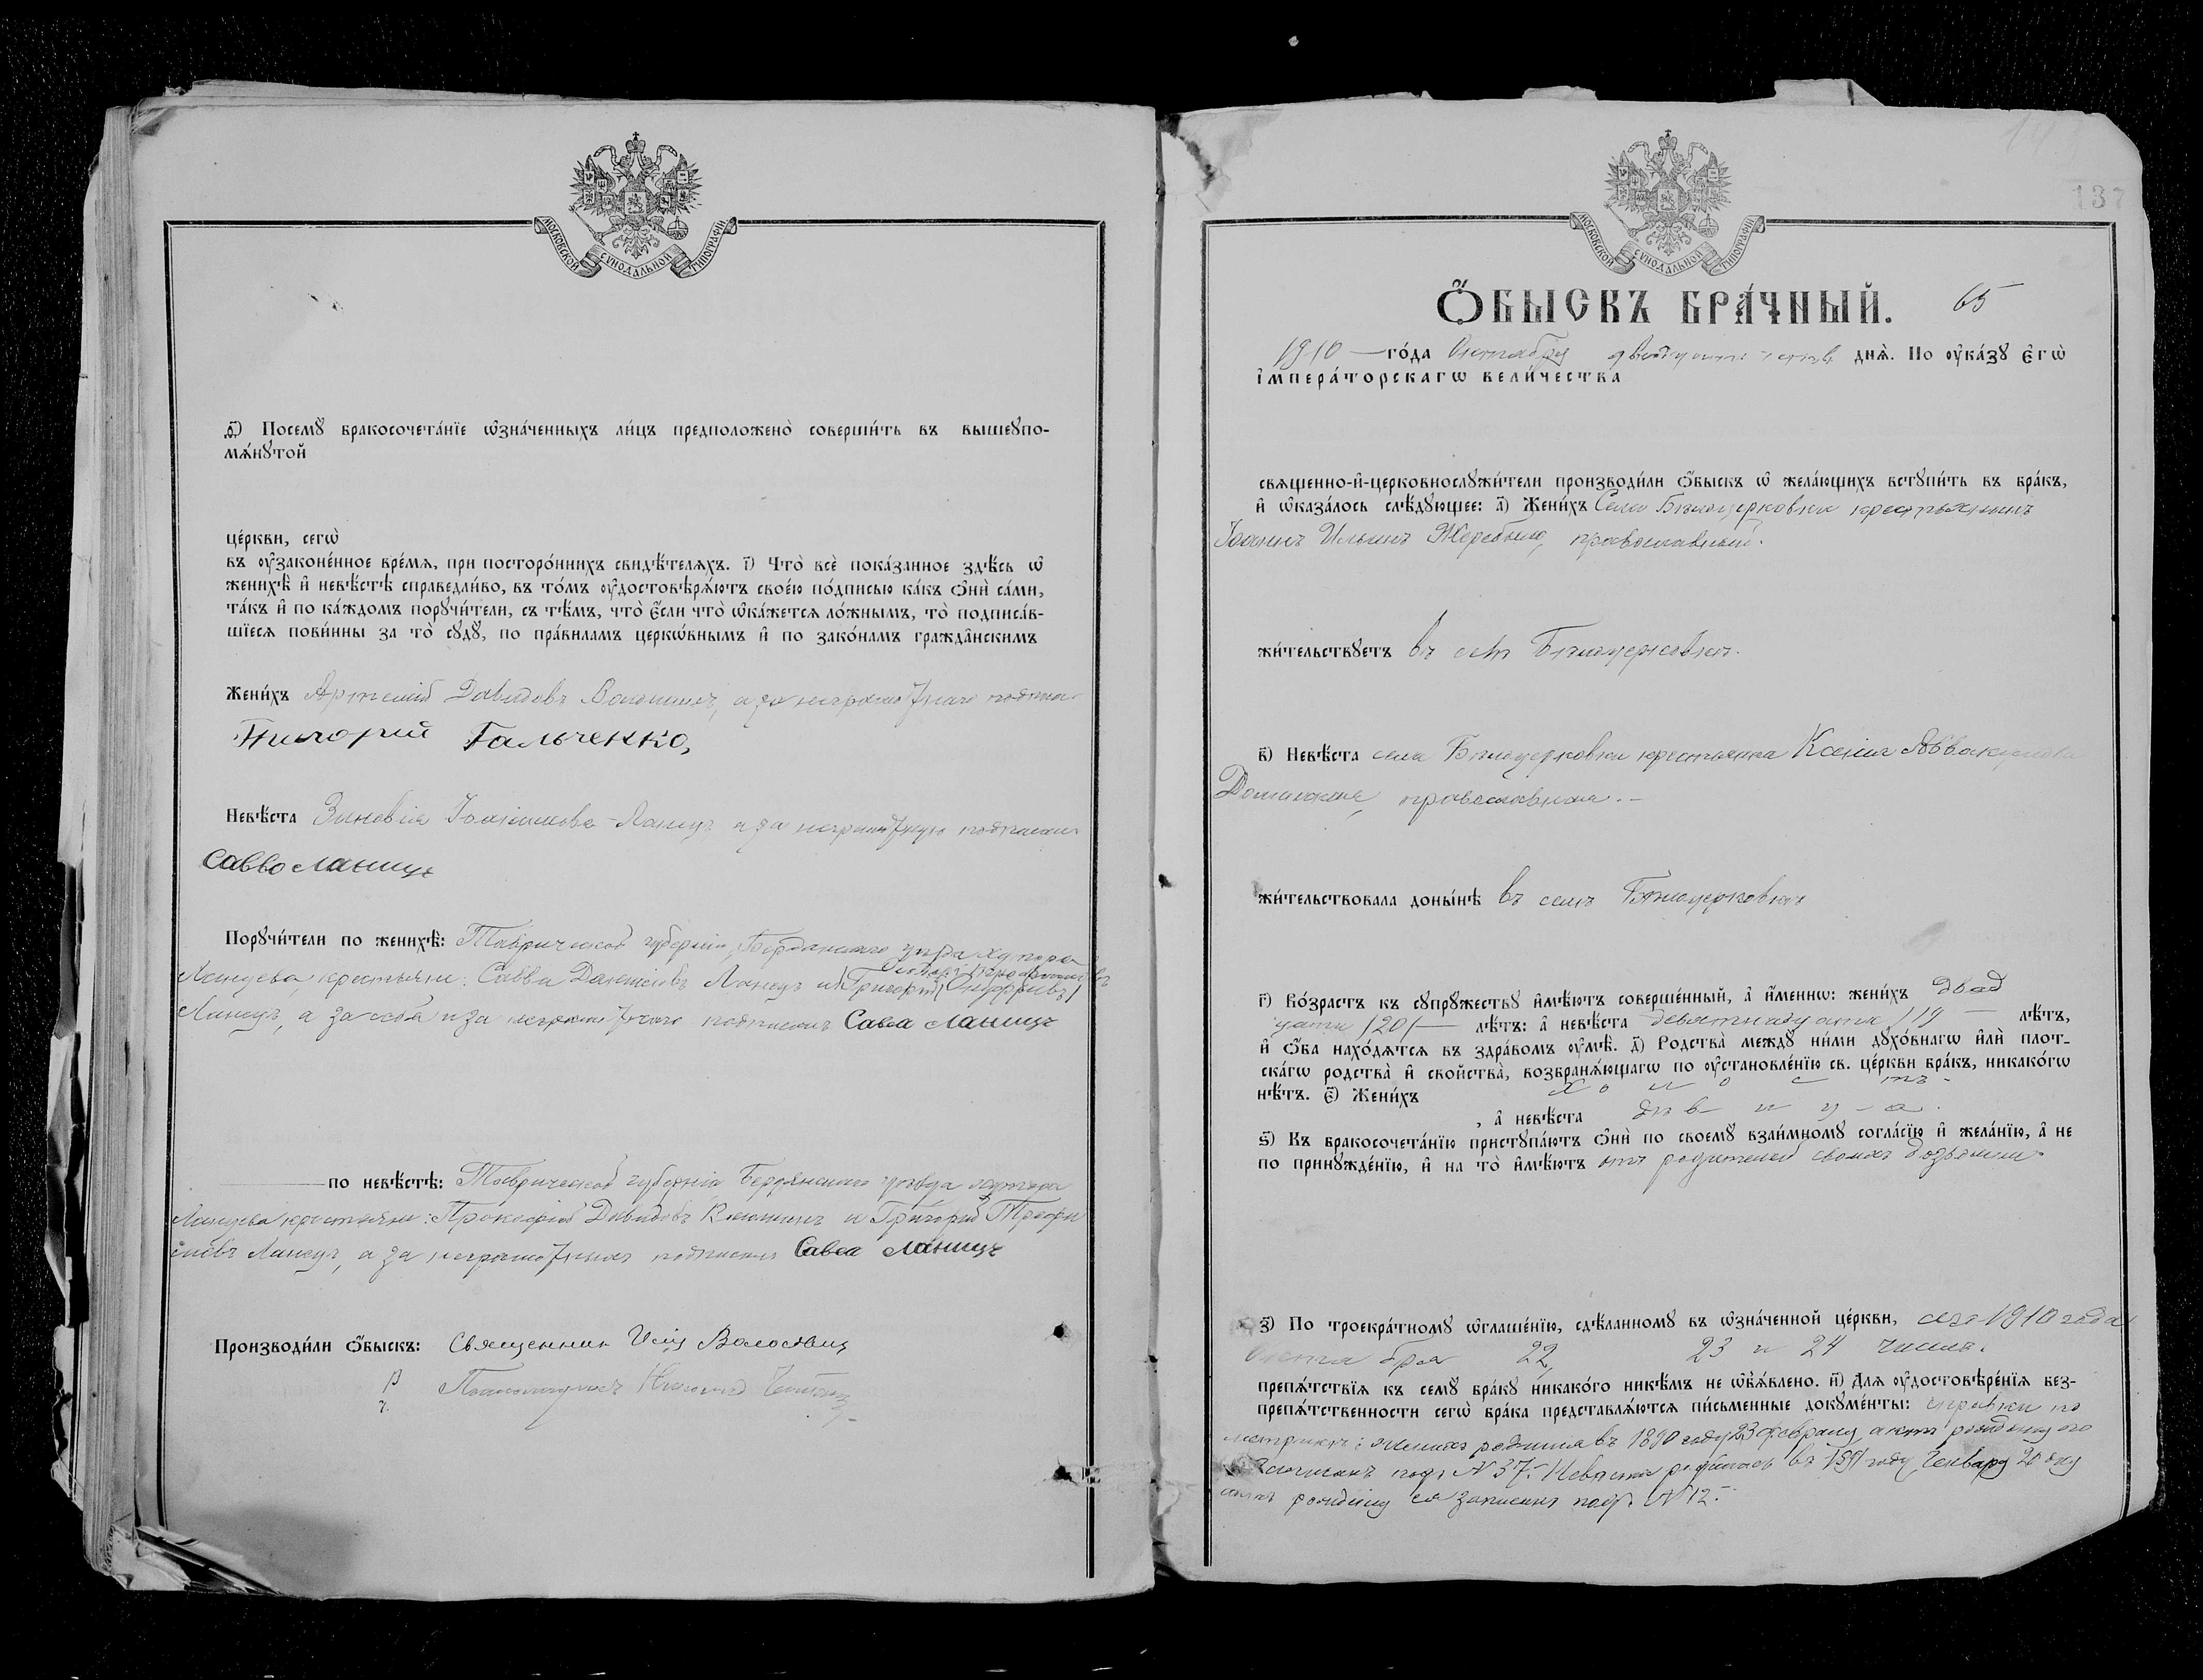 МОСКОВСКОЙ СѴНОДАЛЬНОЙ ТИПОГРАФІИ
ѳ҃) Посемꙋ̀ бракосочета́нїе ѡ҆зна́ченныхъ ли́цъ предположено̀ соверши́ть въ вышеꙋпо-
мѧ́нꙋтой
це́ркви, сегѡ̀
въ ᲂу҆зако́ненное вре́мѧ, при посторо́ннихъ свидѣ́телѧхъ. і҃) Что̀ всѐ пока́занное здѣ́сь ѡ҆
женихѣ̀ и҆ невѣ́стѣ справедли́во, въ то́мъ ᲂу҆достовѣрѧ́ютъ свое́ю по́дписью ка́къ ѻ҆нѝ са́ми,
та́къ и҆ по ка́ждомъ порꙋчи́тели, съ тѣ́мъ, что̀ є҆́сли что̀ ѡ҆ка́жетсѧ ло́жнымъ, то̀ подписа́в-
шїесѧ пови́нны за то̀ сꙋдꙋ̀, по пра́виламъ церкѡ́внымъ и҆ по зако́намъ гражда́нскимъ
Жени́хъ Артемій Давидовъ а за неграмотнаго
Григорій Гальченко,
Невѣ́ста Зиновія Ланцуг а за неграмотную
Савво Ланцуг
Порꙋчи́тели по женихѣ̀: Таврической губерніи, Бердянскаго уѣзда хутора
Ланцева крестьяне: Савва Ланцуг и Григорій
Ланцуг, а за себя и за неграмотнаго подписалъ Савва Ланцуг
по невѣ́стѣ: Таврической губерніи Бердянскаго уѣзда хутора
Ланцева крестьяне: Прокофій Давидовъ и Григорій Трофи
мовъ Ланцуг, а за неграмотныхъ подписалъ Савва Ланцуг
Производи́ли ѻ҆́быскъ: Священник
Псаломщикъ
МОСКОВСКОЙ СѴНОДАЛЬНОЙ ТИПОГРАФІИ
137
Ѻ҆́БЫСКЪ БРА́ЧНЫЙ. 65
1910 го́да Октября двадцать четв. днѧ̀. По ᲂу҆ка́зꙋ є҆гѡ̀
і҆мпера́торскагѡ вели́чества
свѧщенно-и҆-церковнослꙋжи́тели производи́ли ѻ҆́быскъ ѡ҆ жела́ющихъ встꙋпи́ть въ бра́къ,
и҆ ѡ҆каза́лось слѣ́дꙋющее: а҃) Жени́хъ Села Бѣлоцерковки крестьянинъ
Іоаннъ Ильинъ Жеребило, православный.
жи́тельствꙋетъ въ селѣ Бѣлоцерковкѣ.
в҃) Невѣ́ста села Бѣлоцерковки крестьянка Ксенія Аввакумова
православная.-
жи́тельствовала доны́нѣ въ селѣ Бѣлоцерковкѣ
г҃) Во́зрастъ къ сꙋпрꙋ́жествꙋ и҆мѣ́ютъ соверше́нный, а҆ и҆́менно: жени́хъ двад
цати /20/ лѣ́тъ: а҆ невѣ́ста девятнадцати /19 лѣ́тъ,
и҆ ѻ҆́ба нахо́дѧтсѧ въ здра́вомъ ᲂу҆мѣ̀. д҃) Родства̀ междꙋ̀ ни́ми дꙋхо́внагѡ и҆лѝ плот-
ска́гѡ родства̀ и҆ сво́йства, возбранѧ́ющагѡ по ᲂу҆становле́нїю св. це́ркви бра́къ, никако́гѡ
нѣ́тъ. є҃) Жени́хъ холостъ
, а҆ невѣ́ста дѣвица.
ѕ҃) Къ бракосочета́нїю пристꙋпа́ютъ ѻ҆нѝ по своемꙋ̀ взаи́мномꙋ согла́сїю и҆ жела́нїю, а҆ не
по принꙋжде́нїю, и҆ на то̀ и҆мѣ́ютъ отъ родителей своихъ дозволеніе
з҃) По троекра́тномꙋ ѡ҆глаше́нїю, сдѣ́ланномꙋ въ ѡ҆зна́ченной це́ркви, сего 1910 года
Октября 22, 23 и 24 числа.
препѧ́тствїѧ къ семꙋ̀ бра́кꙋ никако́го никѣ́мъ не ѡ҆б̾ѧ́влено. и҃) Длѧ ᲂу҆достовѣре́нїѧ без-
препѧ́тственности сегѡ̀ бра́ка представлѧ́ютсѧ пи́сьменные докꙋме́нты: справки по
метрикѣ: женихъ родился въ 1890 году 23 февраля, актъ рожденія его
записанъ подъ №37. Невѣста родилась въ 1891 году, Генваря 20 дня
актъ рожденія ея записанъ подъ №12.